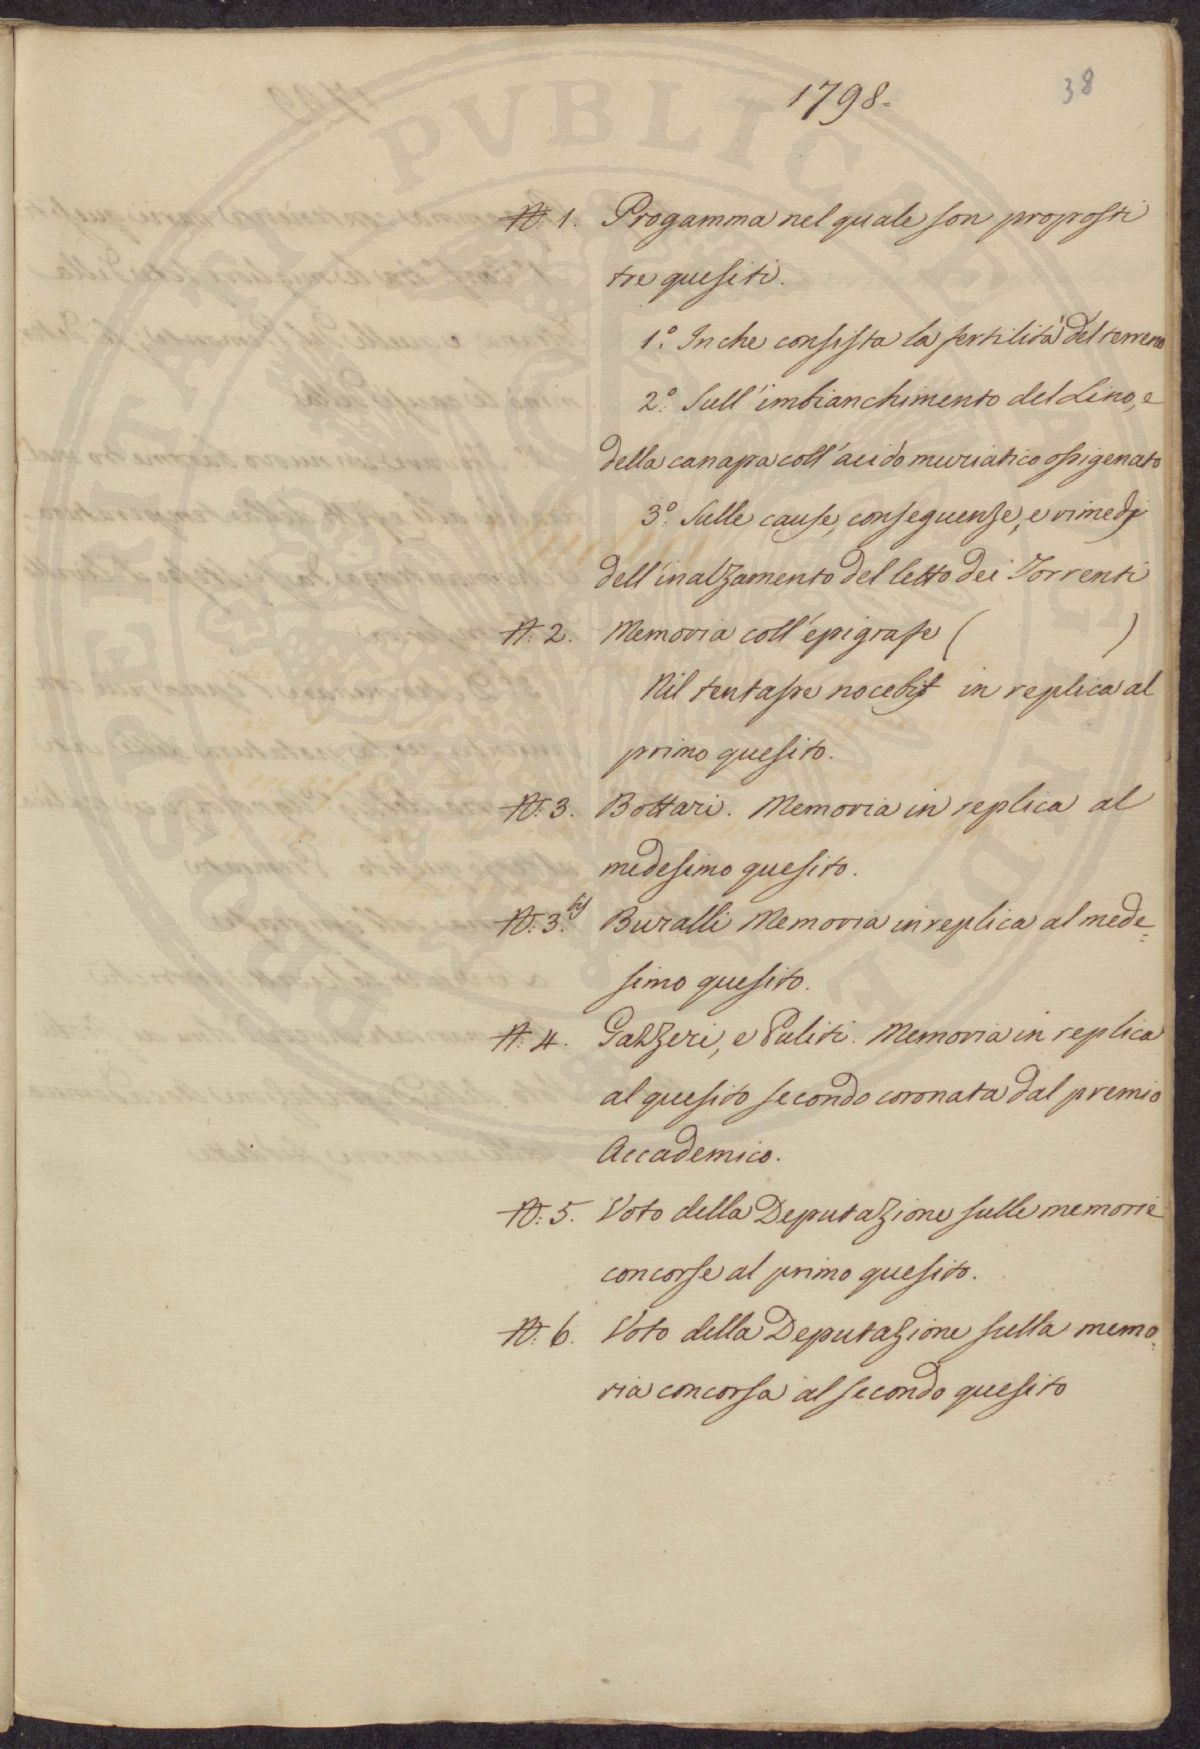 38
1798.
N. 1. Progamma nel quale son proposti
tre quesiti.
1.° In che consista la fertilità del terreno
2.° Sull'imbianchimento del Lino, e
della canapa coll'acido muriatico ossigenato
3.° Sulle cause, conseguenze, e rimedj
dell'inalzamento del letto dei Torrenti
N. 2. Memoria coll'epigrafe ( )
Nil tentasse nocebit in replica al
primo quesito.
N. 3. Bottari. Memoria in replica al
medesimo quesito.
N. 3.bis Buralli Memoria in replica al mede=
simo quesito.
N. 4. Gazzeri, e Puliti. Memoria in replica
al quesito secondo coronata dal premio
Accademico.
N. 5. Voto della Deputazione sulle memorie
concorse al primo quesito.
N. 6. Voto della Deputazione sulla memo=
ria concorsa al secondo quesito